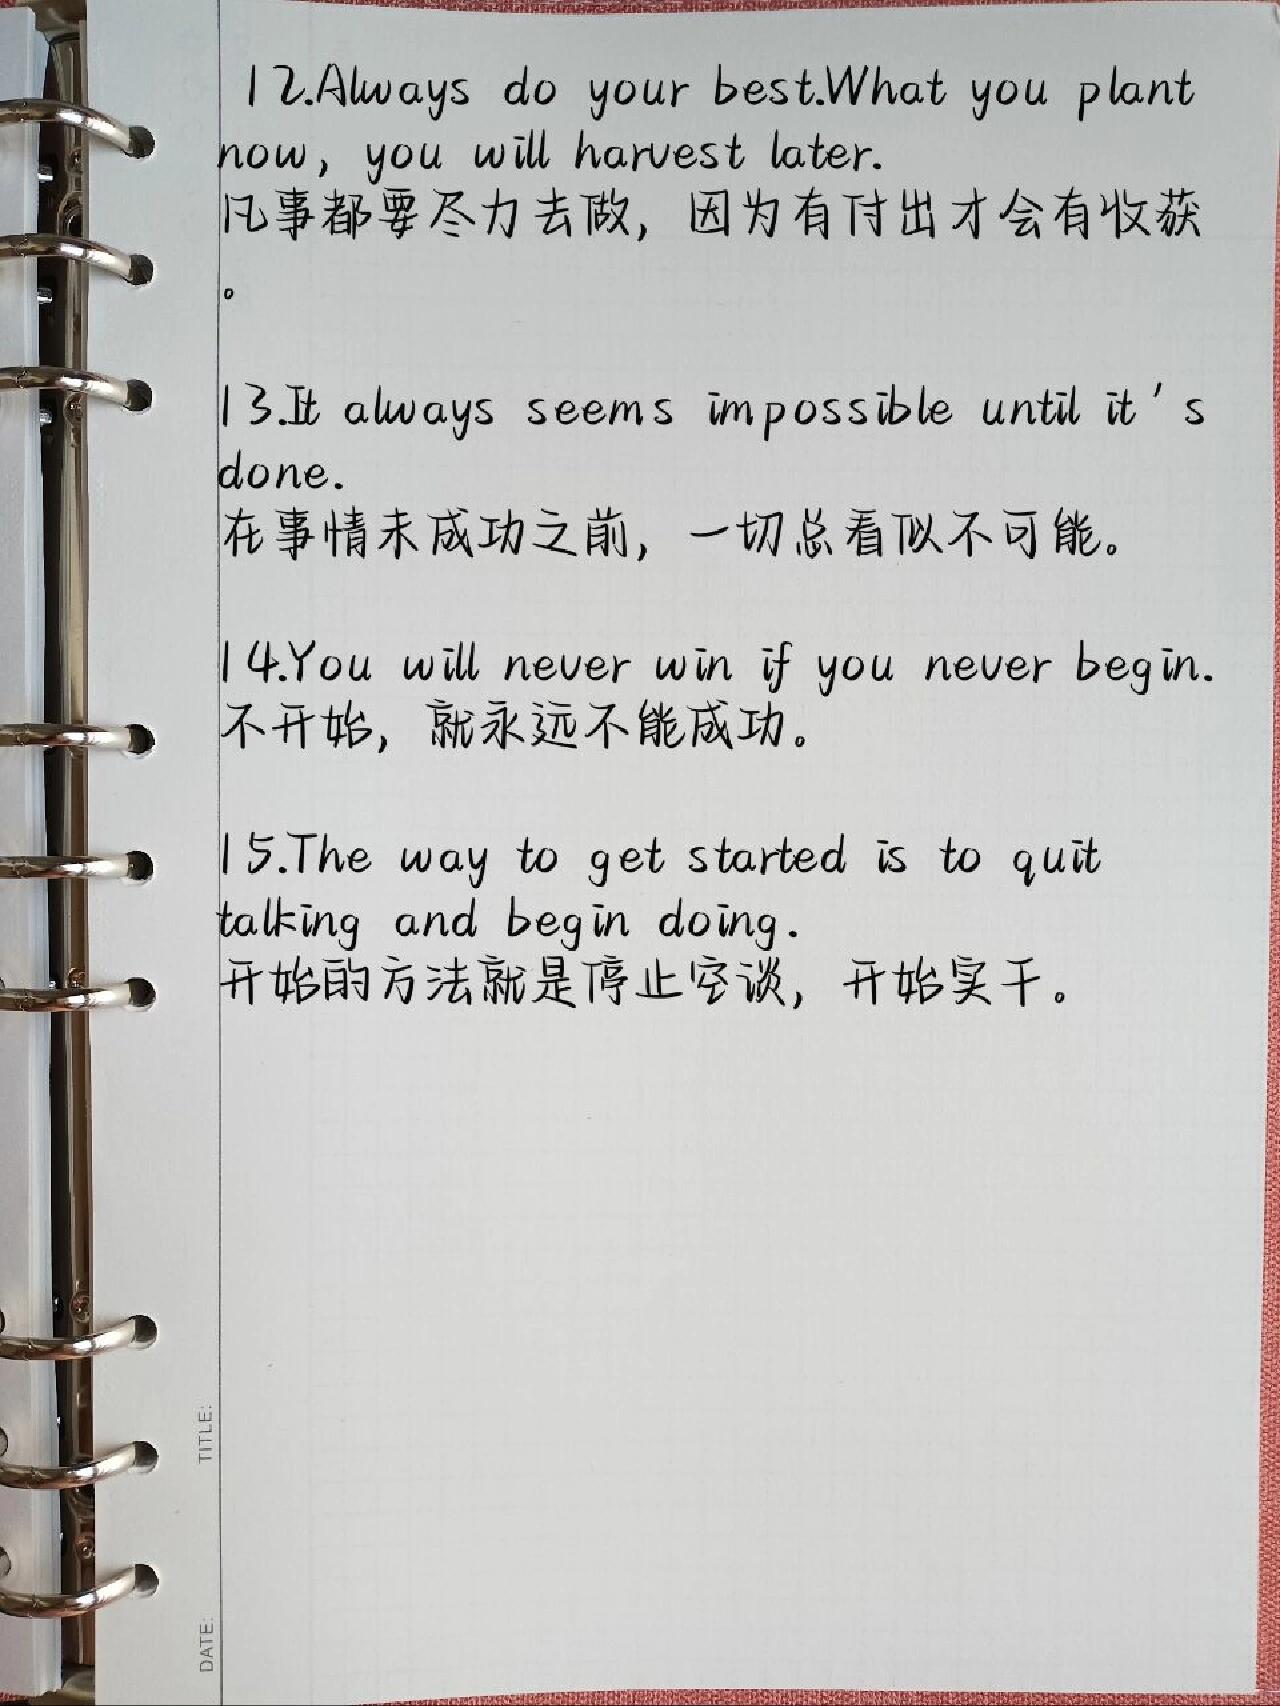 12.Always do your best.What you plant
now, you will harvest later.
凡事都要尽力去做，因为有付出才会有收获
。
13.It always seems impossible until it's
done.
在事情未成功之前，一切总看似不可能。
14.You will never win if you never begin.
不开始，就永远不能成功。
15.The way to get started is to quit
talking and begin doing.
开始的方法就是停止空谈，开始实干。
TITLE:
DATE: